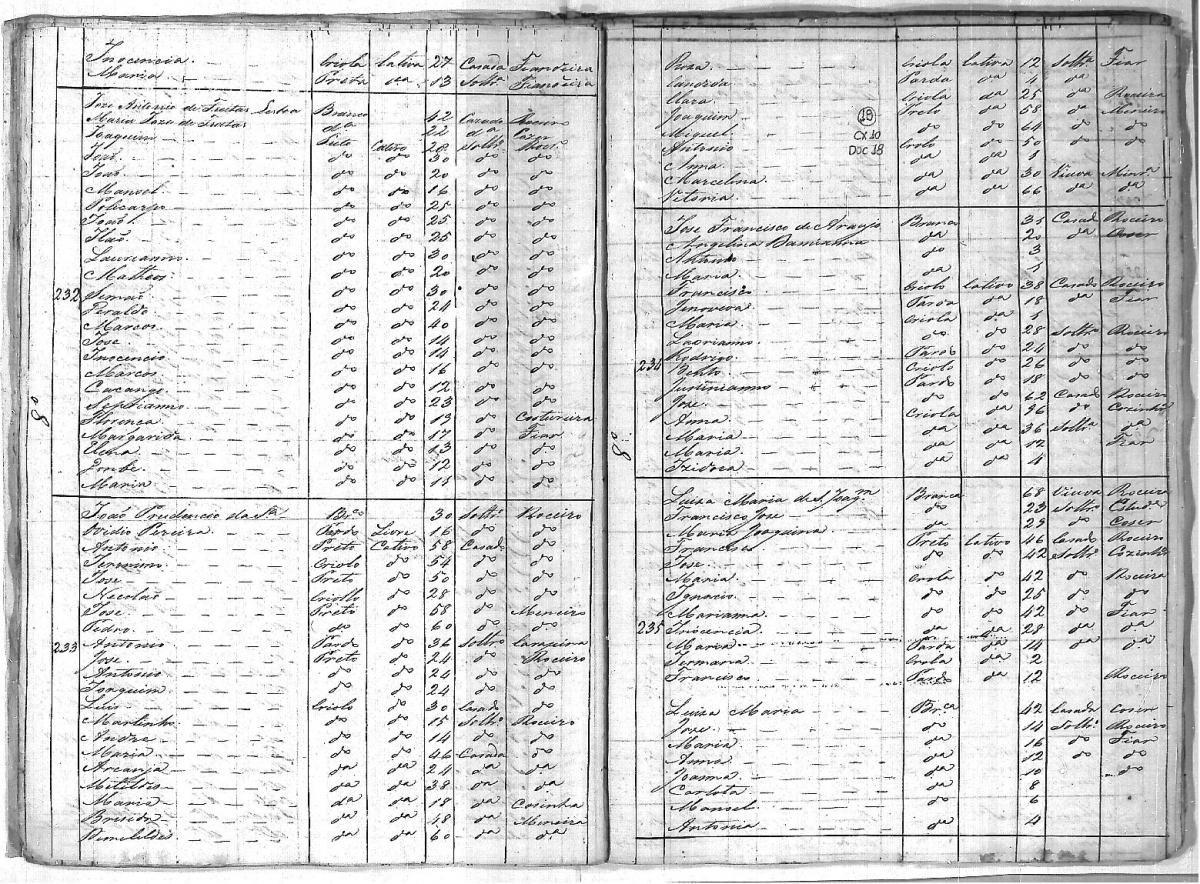 Inocencia Criola Cativa 27 Casada Fiandeira
Maria Preta da 13 Solta Fiandeira
Jose Antonio de Freitas Branco 42 Casado
Maria Roza de Freitas da 22 da Cozer
Joaquim Preto Cativo 28 Solto
Joaõ do do 30 do do
Joaõ do do 20 do do
Manoel do do 16 do do
Policarpo do do 25 do do
Joaõ do do 25 do do
do do 25 do do
Laureanno do do 30 do do
Matheos do do 20 do do
232 Simaõ do do 30 do do
Geraldo do do 24 do do
Marcos do do 40 do do
Jose do do 14 do do
Inocencio do do 14 do do
Marcos do do 16 do do
do do 12 do do
do do 23 do do
Florença do do 19 do Costureira
Margarida do do 17 do Fiar
Elena do do 13 do do
do do 12 do do
Maria do do 11 do do
8º
Joaõ Prudencio da Sa Bco 30 Solto Roceiro
Ovidio Pereira Pardo Livre 16 do do
Antonio Preto Cativo 58 Casado do
Jeronimo Criolo do 54 do do
Jose Preto do 50 do do
Necolaõ Criollo do 28 do do
Jose Preto do 58 do Meneiro
Pedro do do 60 do do
233 Antonio Pardo do 36 Soltro Carapina
Jose Preto do 24 do Roceiro
Antonio do do 24 do do
Joaquim do do 24 do do
Luis Criolo do 30 Casado do
Martinho do do 15 Solto Roceiro
Andre do do 14 do do
Maria do do 46 Casada do
Arcanja da da 24 da da
da da 38 da da
Maria da da 18 da Cosinha
da da 48 da Meneira
da da 60 da da
Roza Criola Cativa 12 Solta Fiar
Candida Parda da 4 da
Clara Criola da 25 da Roceira
Joaquim Preto da 58 da Meneiro
Miguel do do 64 do do
Antonio Criolo do 50 do do
Anna da da 1
Marcelina da da 30 Viuva Minra
Vitoria da da 66 da da
18
CX 10
DOC 18
Jose Francisco de Araujo Branco 35 Casado Roceiro
Angelica da 20 da Coser
Antonio do 3
Maria da 1
Francisco Criolo Cativo 38 Casado Roceiro
Genoveva Parda da 18 da Fiar
Maria Criola da 1
Laurianno do do 28 Solto Roceiro
Rodrigo Pardo do 24 do do
234 Bento Criolo do 26 do do
Justinianno Pardo do 18 do do
Jose do 62 Casado Roceiro
Anna Criola da 96 do Cozinha
Maria da da 36 Solta da
Maria da da 12 Fiar
Izidora da da 4
8º
Luiza Maria de S. Joaqm Branca 68 Viuva Roceira
Francisco Jose do 23 Solto
Maria Joaquina da 29 do Coser
Francisco Preto Cativo 46 Casado Roceiro
Jose do do 42 Solto Cozinho
Maria Criola do 42 do Roceira
Ignacio do do 25 do do
Marianna do do 42 do Fiar
235 Inocencia da da 28 da da
Maria Parda da 14 da da
Germana Criola da 2
Francisco Pardo da 12 Roceiro
Luiza Maria Brca 42 Casada Coser
Jose do 14 Solto Roceiro
Maria da 16 do Fiar
Anna da 12 do do
Joanna da 10 do
Carlota da 8
Manoel do 6
Antonia da 4